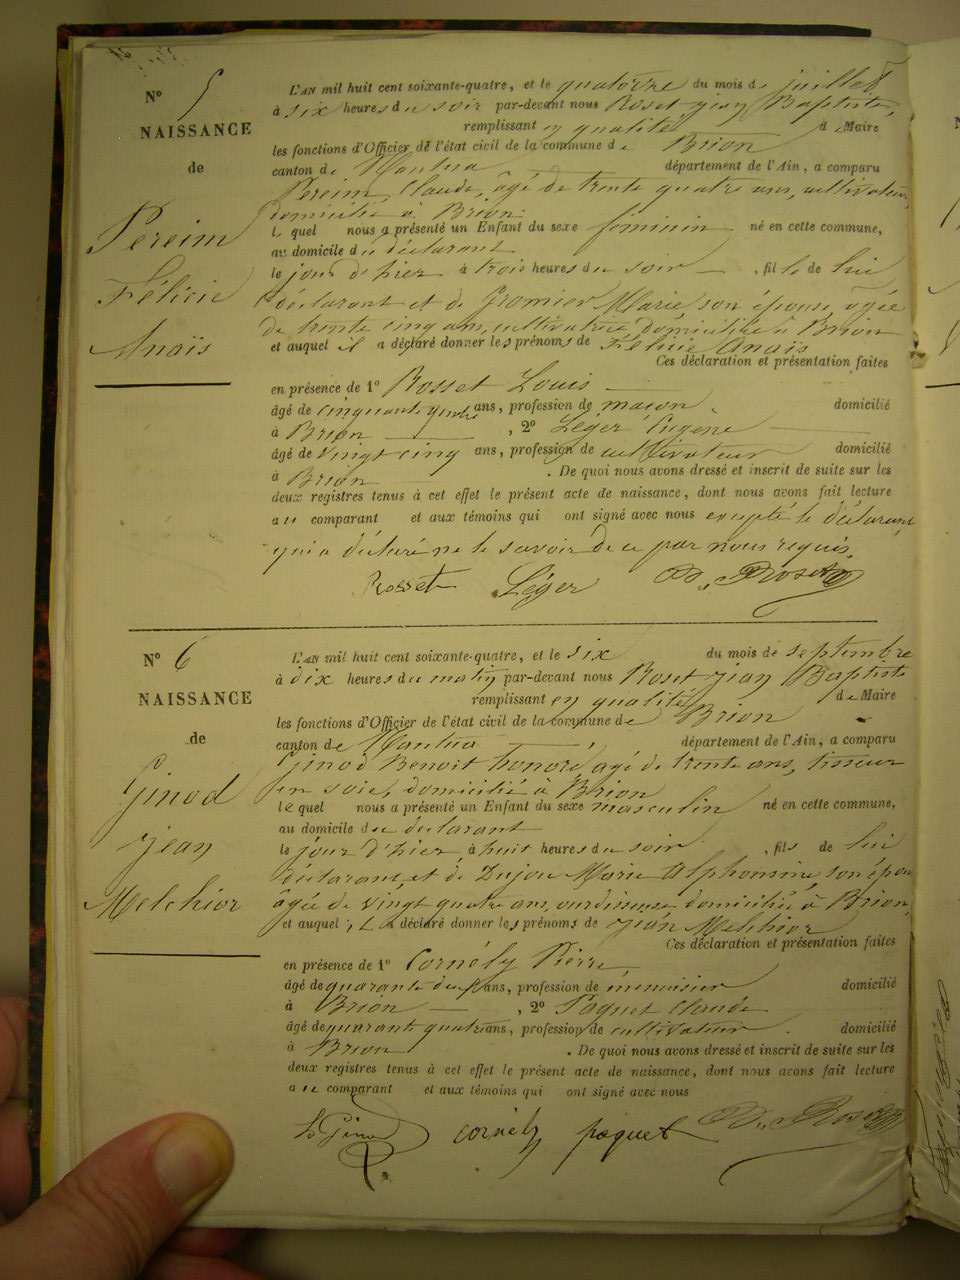 N° 5
NAISSANCE
de
Pereim
Félicie
Anaïs
L'AN mil huit cent soixante-quatre, et le quatorze du mois de juillet
à six heures du soir par-devant nous Roset Jean Baptiste,
remplissant en qualité de Maire
les fonctions d'Officier de l'état civil de la commune de Brion
canton de Nantua département de l'Ain, a comparu
Pereim Claude, âgé de trente quatre ans, cultivateur,
domicilié à Brion
lequel nous a présenté un Enfant du sexe féminin né en cette commune,
au domicile du déclarant
le jour d'hier à trois heures du soir, fille de lui
déclarant et de Gromier Marie son épouse, âgée
de trente cinq ans, cultivatrice domiciliée à Brion
et auquel il a déclaré donner les prénoms de Félicie Anaïs
Ces déclaration et présentation faites
en présence de 1° Rosset Louis
âgé de cinquante quatre ans, profession de maçon, domicilié
à Brion, 2° Léger Eugène
âgé de vingt cinq ans, profession de cultivateur domicilié
à Brion. De quoi nous avons dressé et inscrit de suite sur les
deux registres tenus à cet effet le présent acte de naissance, dont nous avons fait lecture
au comparant et aux témoins qui ont signé avec nous excepté le déclarant,
qui a déclaré ne le savoir de ce par nous requis.
Rosset Léger B. Roset
N° 6
NAISSANCE
de
Ginod
Jean
Melchior
L'AN mil huit cent soixante-quatre, et le six du mois de septembre
à dix heures du matin par-devant nous Roset Jean Baptiste
remplissant en qualité de Maire
les fonctions d'Officier de l'état civil de la commune de Brion
canton de Nantua, département de l'Ain, a comparu
Ginod Benoit honoré âgé de trente ans, tisseur
en soie, domicilié à Brion
lequel nous a présenté un Enfant du sexe masculin né en cette commune,
au domicile du déclarant
le jour d'hier, à huit heures du soir, fils de lui
déclarant, et de Dujou Marie Alphonsine, son épouse
âgée de vingt quatre ans, ourdisseuse domiciliée à Brion,
et auquel il a déclaré donner les prénoms de Jean Melchior
Ces déclaration et présentation faites
en présence de 1° Cornély Pierre,
âgé de quarante deux ans, profession de menuisier domicilié
à Brion, 2° Paquet Claude
âgé de quarante quatre ans, profession de cultivateur. domicilié
à Brion. De quoi nous avons dressé et inscrit de suite sur les
deux registres tenus à cet effet le présent acte de naissance, dont nous avons fait lecture
au comparant et aux témoins qui ont signé avec nous
Ginod cornély paquet B. Roset